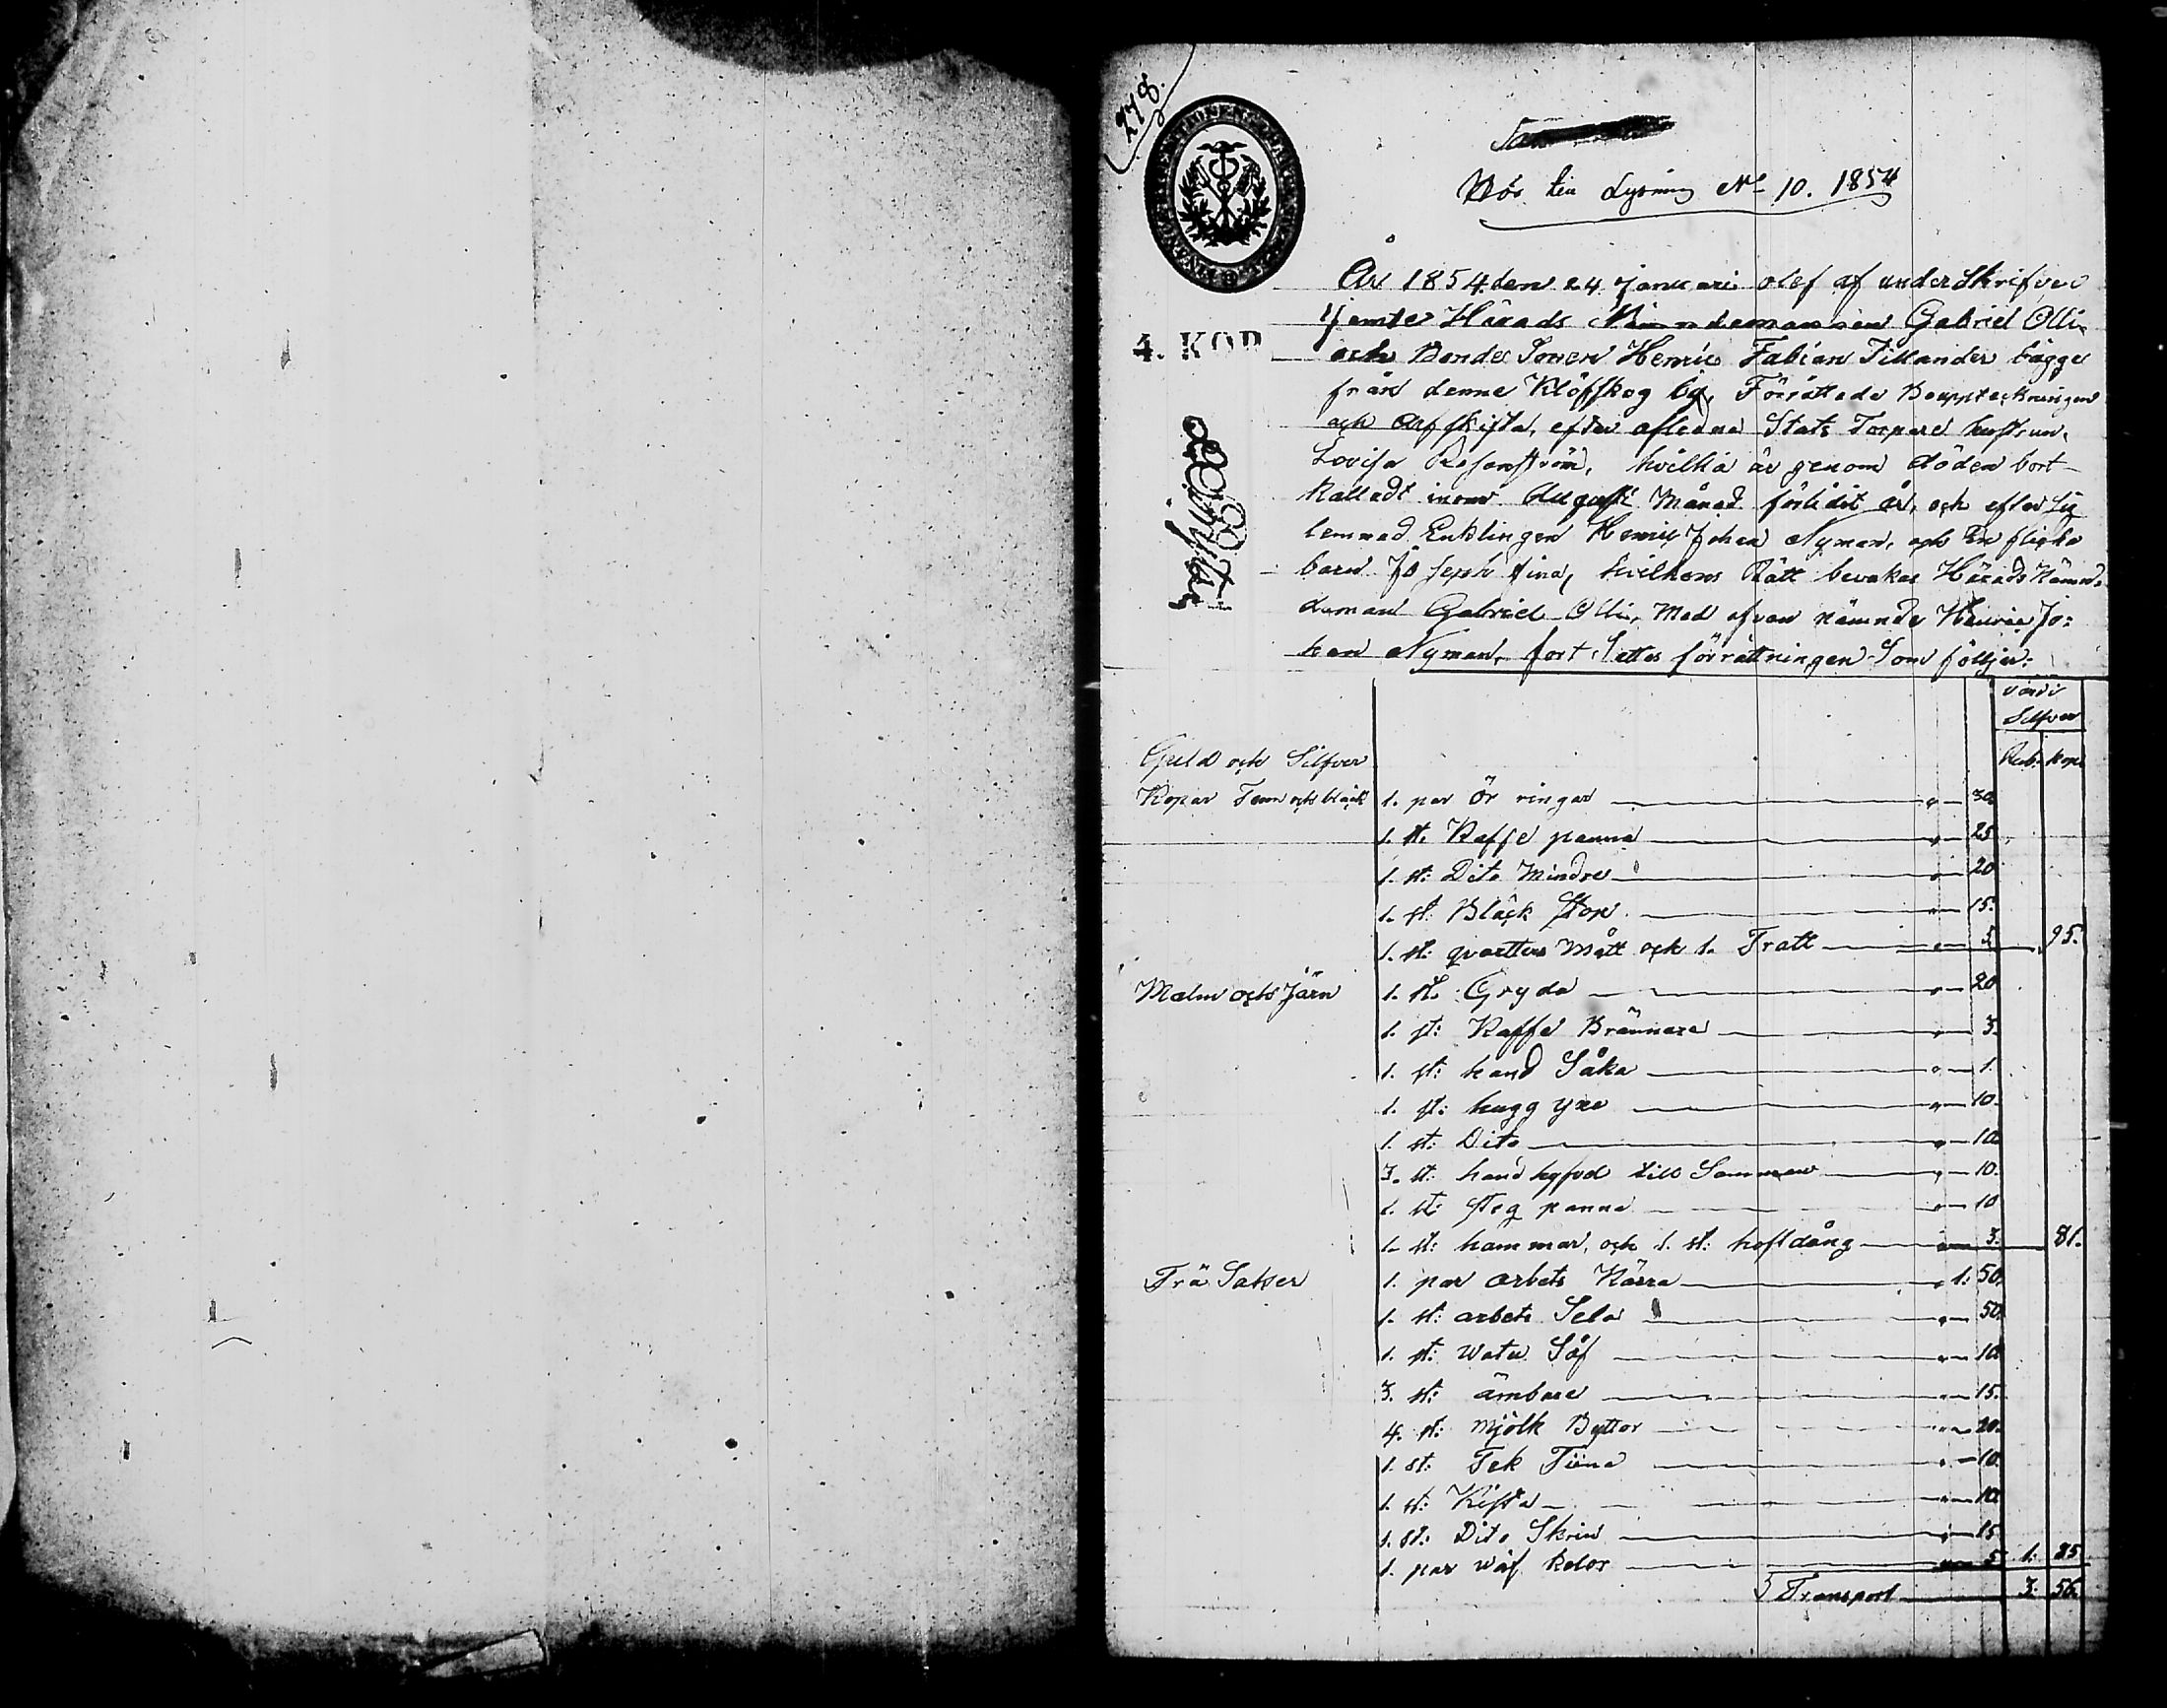 278.
4. KOP
Lysning No 10. 1854
År 1854 den 24 Januari blef af underSkrifven
jemte Härads Nämndemannen Gabriel Olli
och Bonde Sonen Henric Fabian Tillander bägge
från denne Klöfskog by, Förrättade Bouppteckningen
och ArfSkifta, efter afledna Stats Torpare hustrun,
Lovisa Rosenström, hvilka är genom döden bort
kalladt inom Augusti Månad förlidit år, och efter sig
lemnad Enklingen Henric Johan Nyman, och En flicka
barn Josephfina, hvilkens Rätt bevakas Härads Nämnde
deman Gabriel Olli, Med ofvan nämnde Henric Jo:
han Nyman, fort Settes förrättningen Som följer:
värdi
Silfver
Rub. kop.
Guld och Silfver
Kopar Tenn och bläck 1. par Ör ringar 30
1. st. Kaffe panna 25
1. st: Dito Mindre 20
1. st: Bläck Stop 15.
1. st: qvarters Mått och 1. Tratt 5 95.
Malm och Järn 1. st. Gryda 20
1. st: Kaffe Brännare 3.
1. st: hand Såka 1.
1. st: hugg yxe 10.
1. st: Dito 10
3. st: hand till Samman 10.
1. st: Steg panna 10
1. st: hammar, och 1. st: hoftdång 3. 81.
Trä Saker 1. par arbets Kärra 1: 50.
1. st: arbets Sela 50
1. st: Watu Såf 10
3. st: ämbare 15.
4. st: Mjölk Byttor 20.
1. st: Tek Tiina 10.
1. st: Kista 10
1. st: Dito Skrin 15
1. par Wäf 5 1. 85
Transport 3. 56.